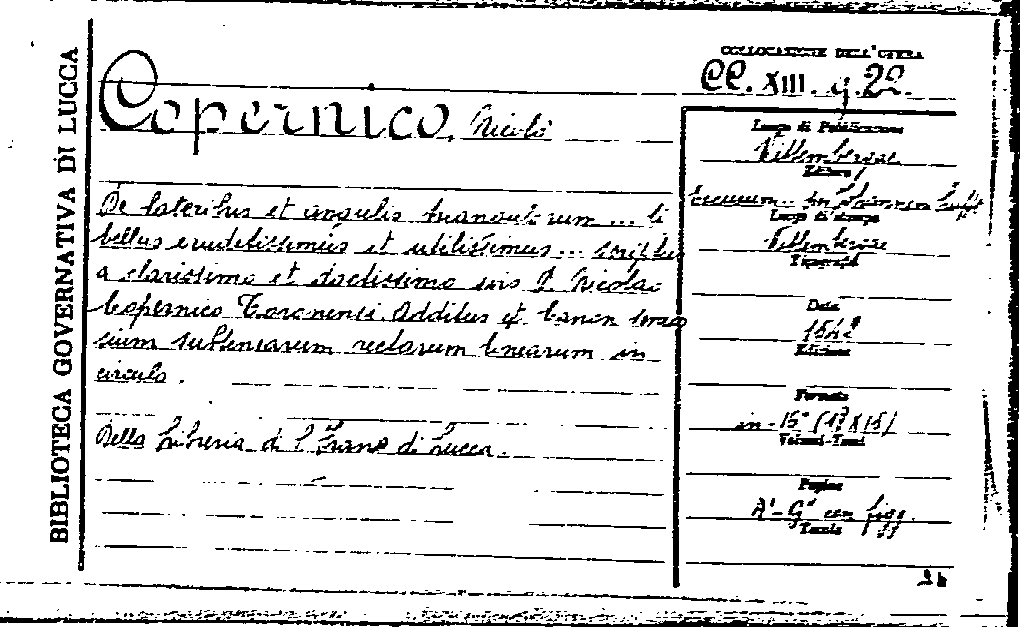 BIBLIOTECA GOVERNATIVA DI LUCCA
COLLOCAZIONE DELL'OPERA
CC. XIII. g. 22.
Copernico, Nicolò
De lateribus et angulis triangulorum ... li
bellus eruditissimus et utilissimus ... scriptus
a clarissimo et doctissimo viro D. Nicolao
Copernico Toronensi. Additus est Canon semis
sium subtensarum rectarum linearum in
circulo.
Della Libreria di S. Frano di Lucca.
Luogo di Pubblicazione
Vittembergae
Editore
Excusum per
Luogo di stampa
Vittembergae
Tipografo
Data
1542
Edizione
Formato
in-15° (19 X 15)
Volumi-Tomi
Pagine
con figg.